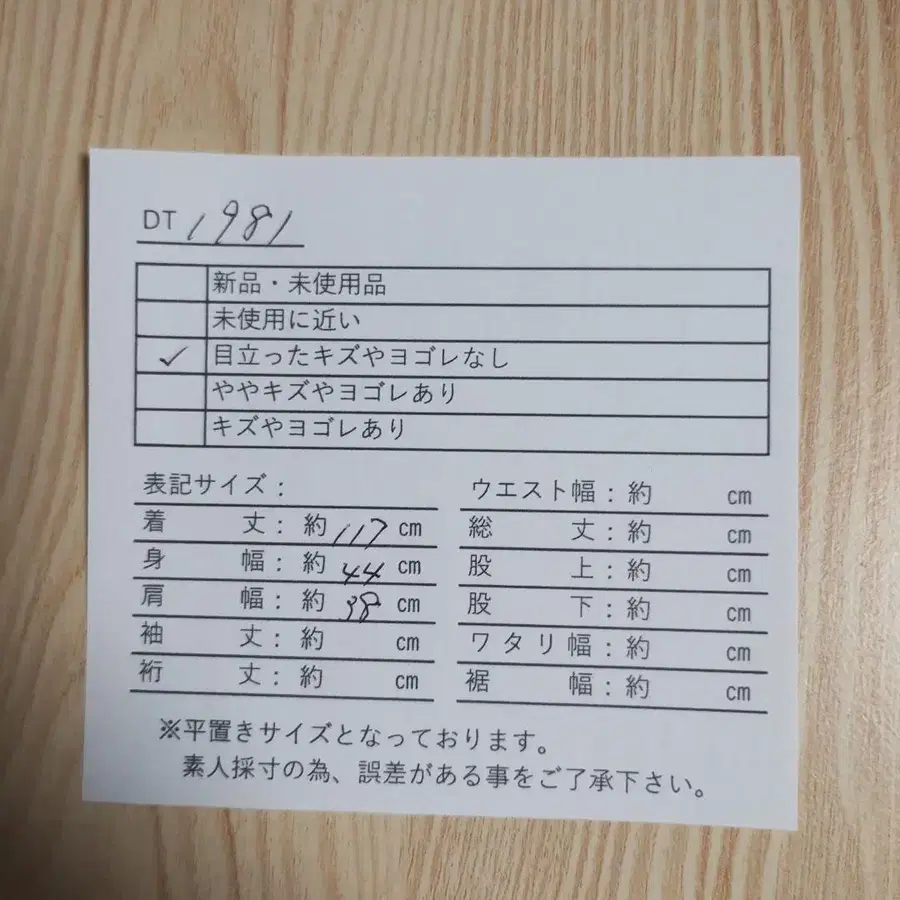 DT 1981
新品・未使用品
未使用に近い
✓ 目立ったキズやヨゴレなし
ややキズやヨゴレあり
キズやヨゴレあり
表記サイズ：
着丈：約117cm
身幅：約44cm
肩幅：約38cm
袖丈：約 cm
裄丈：約 cm
ウエスト幅：約 cm
総丈：約 cm
股上：約 cm
股下：約 cm
ワタリ幅：約 cm
裾幅：約 cm
※平置きサイズとなっております。
素人採寸の為、誤差がある事をご了承下さい。